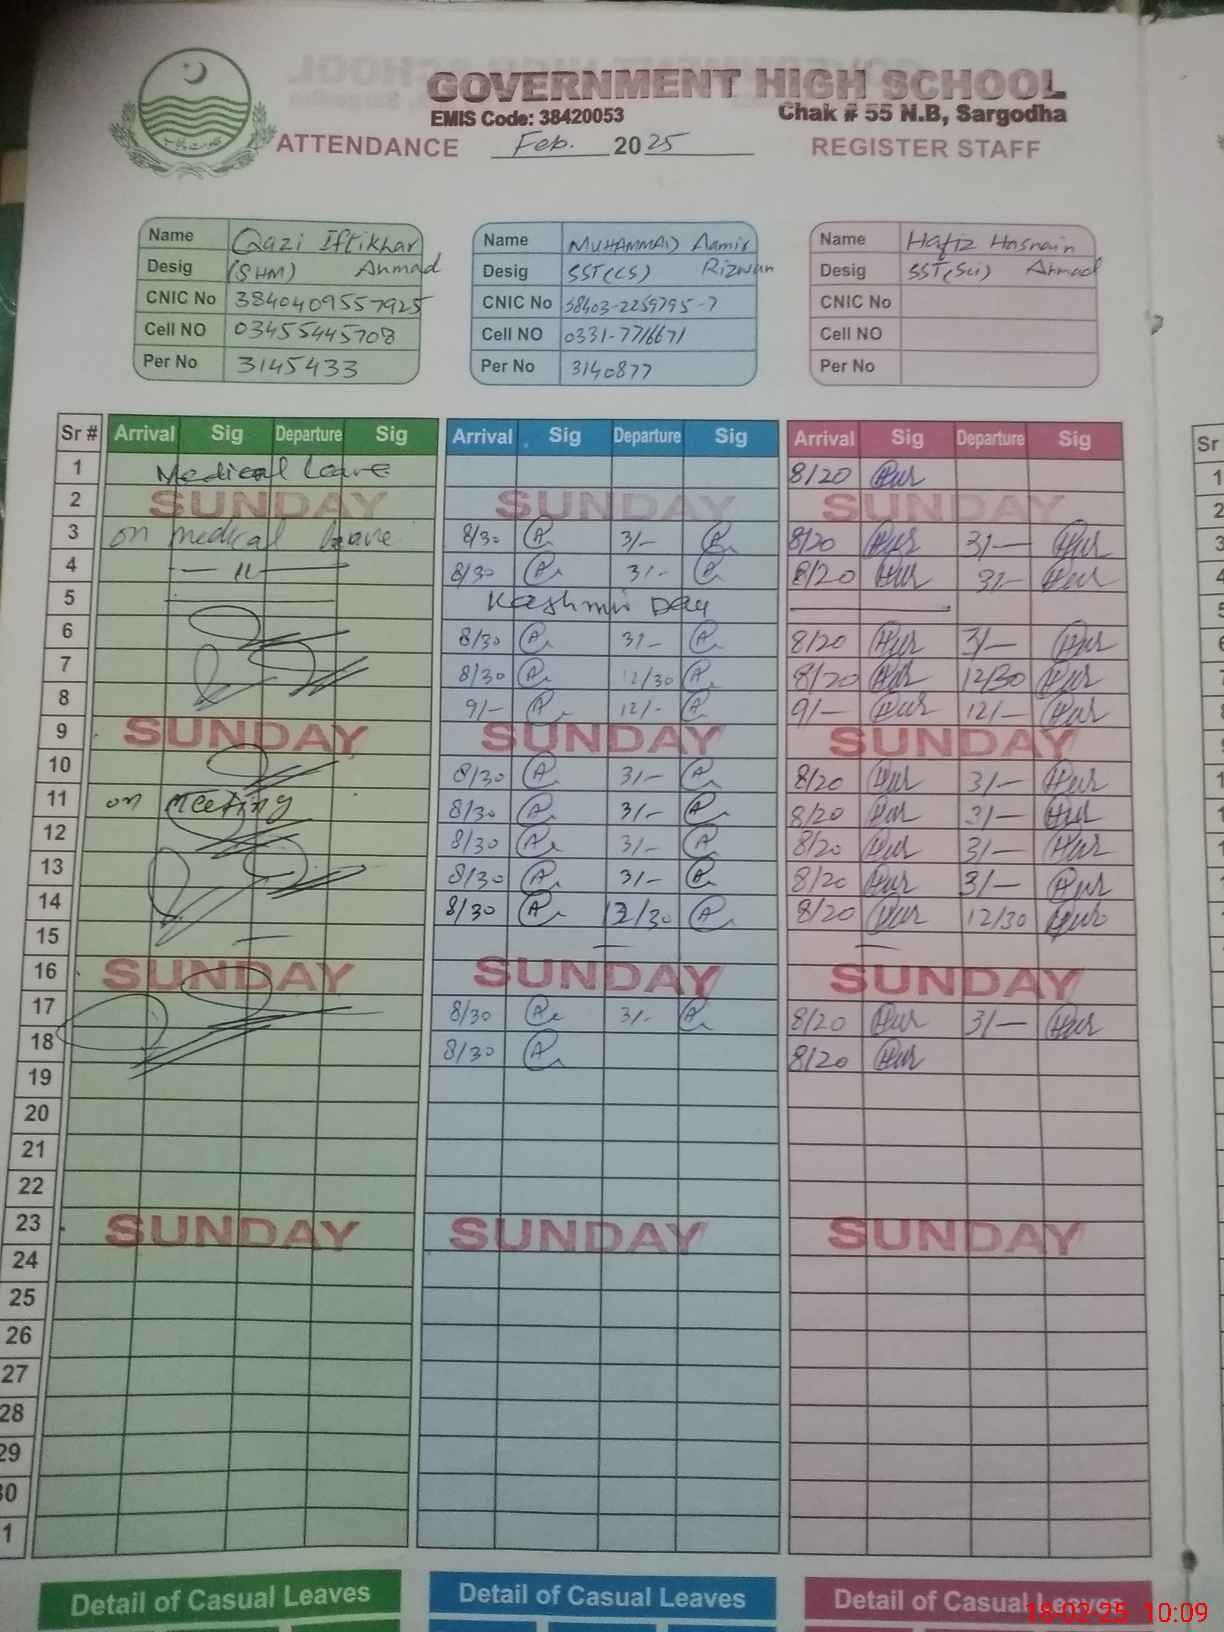 GOVERNMENT HIGH SCHOOL
EMIS Code: 38420053 Chak # 55 N.B, Sargodha
ATTENDANCE Feb. 2025 REGISTER STAFF
Name Qazi Iftikhar
Desig (SHM) Ahmad
CNIC No 3840409557925
Cell NO 03455445708
Per No 3145433
Name MUHAMMAD Aamir
Desig SST(CS) Rizwan
CNIC No 38403-2259795-7
Cell NO 0331-7716671
Per No 3140877
Name Hafiz Hasnain
Desig SST(Sci) Ahmad
CNIC No
Cell NO
Per No
Sr # Arrival Sig Departure Sig Arrival Sig Departure Sig Arrival Sig Departure Sig
1 Medical Leave 8/20
2 SUNDAY SUNDAY SUNDAY
3 on medical leave 8/30 3/- 8/20 3/-
4 — 11 — 8/30 3/- 8/20 3/-
5 Kashmir Day
6 8/30 3/- 8/20 3/-
7 8/30 12/30 8/20 12/30
8 9/- 12/- 9/- 12/-
9 SUNDAY SUNDAY SUNDAY
10 8/30 3/- 8/20 3/-
11 on meeting 8/30 3/- 8/20 3/-
12 8/30 3/- 8/20 3/-
13 8/30 3/- 8/20 3/-
14 8/30 12/30 8/20 12/30
15 — — —
16 SUNDAY SUNDAY SUNDAY
17 8/30 3/- 8/20 3/-
18 8/30 8/20
19
20
21
22
23 SUNDAY SUNDAY SUNDAY
24
25
26
27
28
29
30
1
Detail of Casual Leaves Detail of Casual Leaves Detail of Casual Leaves
18-02-25 10:09
Sr
1
2
3
4
5